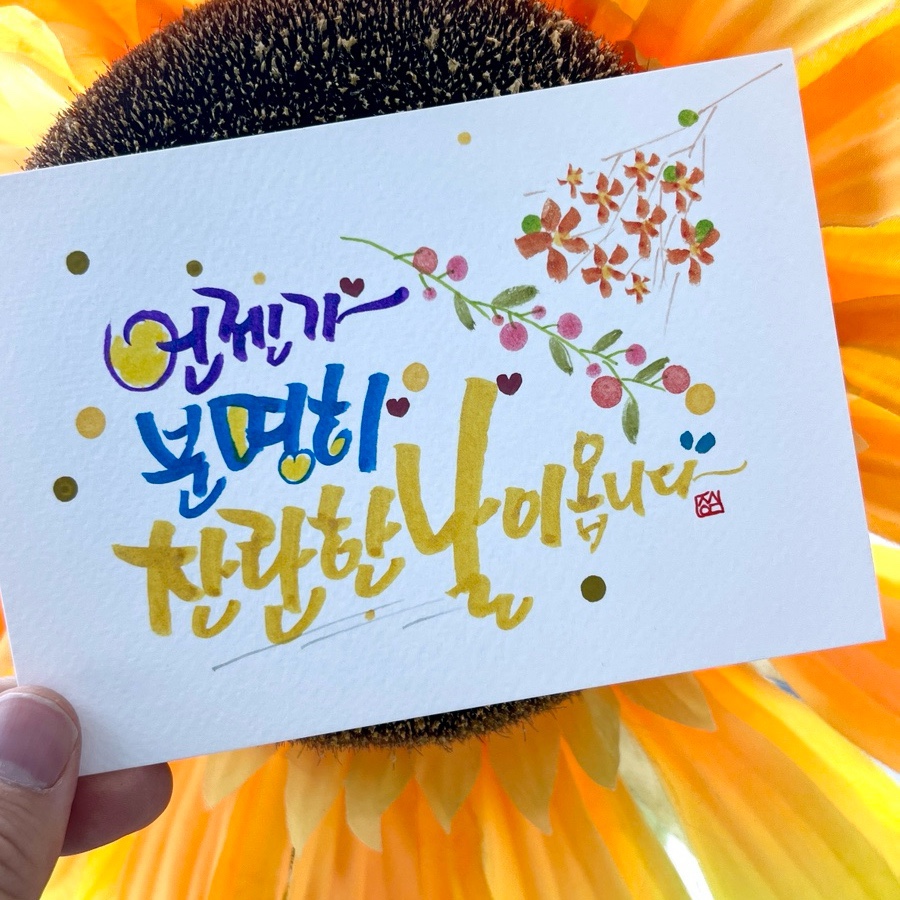 언젠가
분명히
찬란한 날이 옵니다